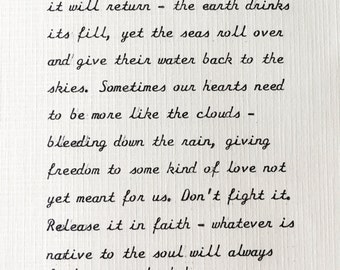 it will return - the earth drinks
its fill, yet the seas roll over
and give their water back to the
skies. Sometimes our hearts need
to be more like the clouds -
bleeding down the rain, giving
freedom to some kind of love not
yet meant for us. Don't fight it.
Release it in faith - whatever is
native to the soul will always